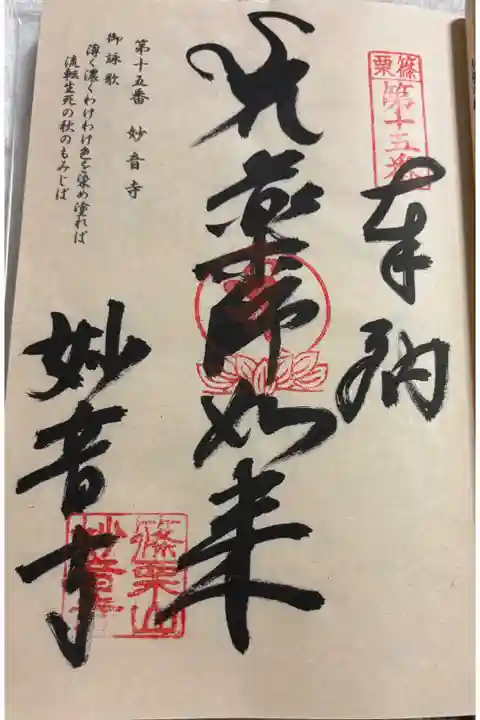 篠栗
第十五番
奉納
薬師如来
第十五番　妙音寺
御詠歌
薄く濃くわけわけ色を染め塗れば
流転生死の秋のもみじば
妙音寺
篠栗山
妙音寺